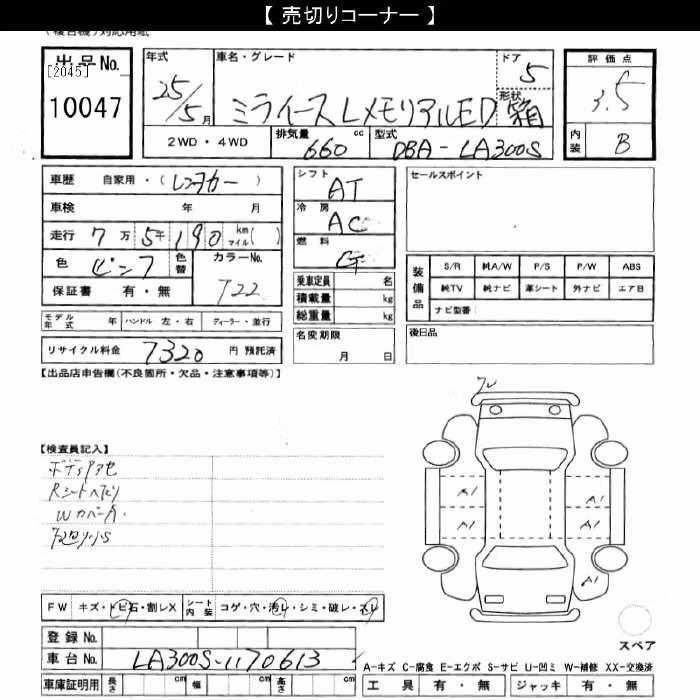 【 売切りコーナー 】
出品No.
[2045]
10047
年式
25/5月
車名・グレード
ミライース LメモリアルED
ドア
5
形状
箱
評価点
3.5
内装
B
2WD・4WD
排気量 660 cc
型式 DBA-LA300S
車歴 自家用・(レンタカー)
車検 年 月
走行 7万5千190 km マイル( )
色 ピンク
色替
カラーNo.
T22
保証書 有・無
シフト
AT
冷房
AC
燃料
乗車定員 名
積載量 kg
総重量 kg
セールスポイント
装備品
S/R 純A/W P/S P/W ABS
純TV 純ナビ 革シート 外ナビ エアB
ナビ型番:
モデル年式 年 ハンドル 左・右 ディーラー・並行
リサイクル料金 7320 円 預託済
名変期限
月 日
後日品
【出品店申告欄(不良箇所・欠品・注意事項等)】
【検査員記入】
ボディアセ
Rシートヘタリ
WカバーA
A1 A1
A1 A1
A1
FW キズ・トビ石・割レX
シート内装 コゲ・穴・汚レ・シミ・破レ・スレ
登録No.
車台No. LA300S-1170613
車庫証明用 長さ cm 幅 cm 高さ cm
スペア
A-キズ C-腐食 E-エクボ S-サビ U-凹ミ W-補修 XX-交換済
工具 有・無 ジャッキ 有・無